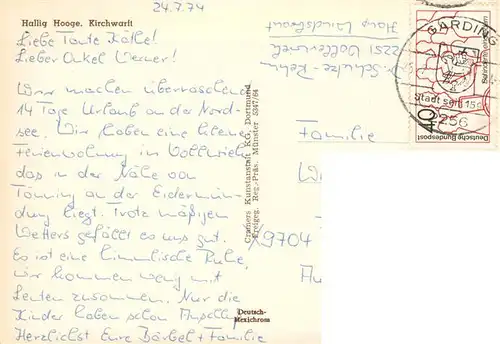 24.7.74
Hallig Hooge, Kirchwarft
Liebe Tante Käthe!
Lieber Onkel Werner!
Wir machen überraschend
14 Tage Urlaub an der Nord-
see. Wir haben eine kleine
Ferienwohnung in Vollerwiek
das in der Nähe von
Tönning an der Eidermün-
dung liegt. Trotz mäßigen
Wetters gefällt es uns gut.
Es ist eine himmlische Ruhe,
wir kommen wenig mit
Leuten zusammen. Nur die
Kinder haben schon
Herzlichst Eure Bärbel + Familie
Cramers Kunstanstalt KG, Dortmund
Freigeg. Reg.-Präs. Münster 5347/64
Deutsch-
Mexichrom
Schulze-Rehm
2251 Vollerwiek
Haus Landsknaut
Familie
X9704
GARDING
Stadt seit 15
2256
40
Deutsche Bundespost